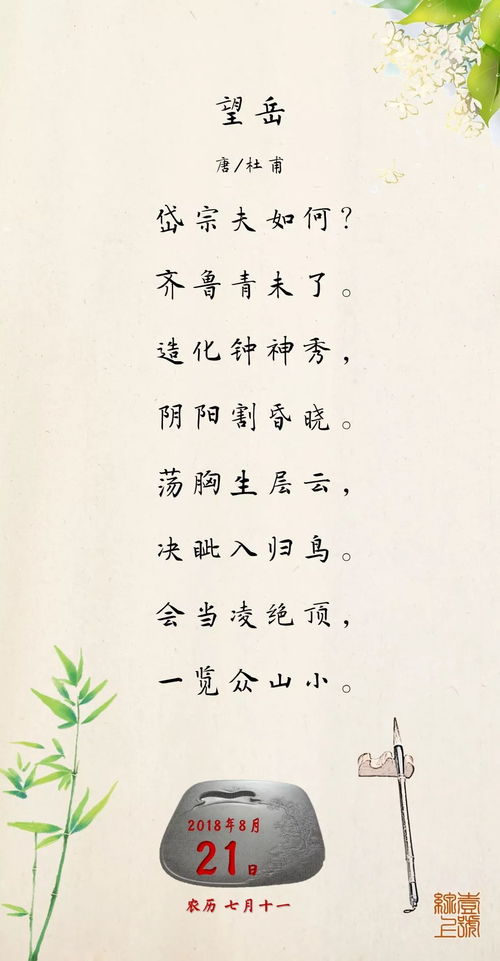 望岳
唐/杜甫
岱宗夫如何?
齐鲁青未了。
造化钟神秀，
阴阳割昏晓。
荡胸生层云，
决眦入归鸟。
会当凌绝顶，
一览众山小。
2018年8月
21日
农历 七月十一